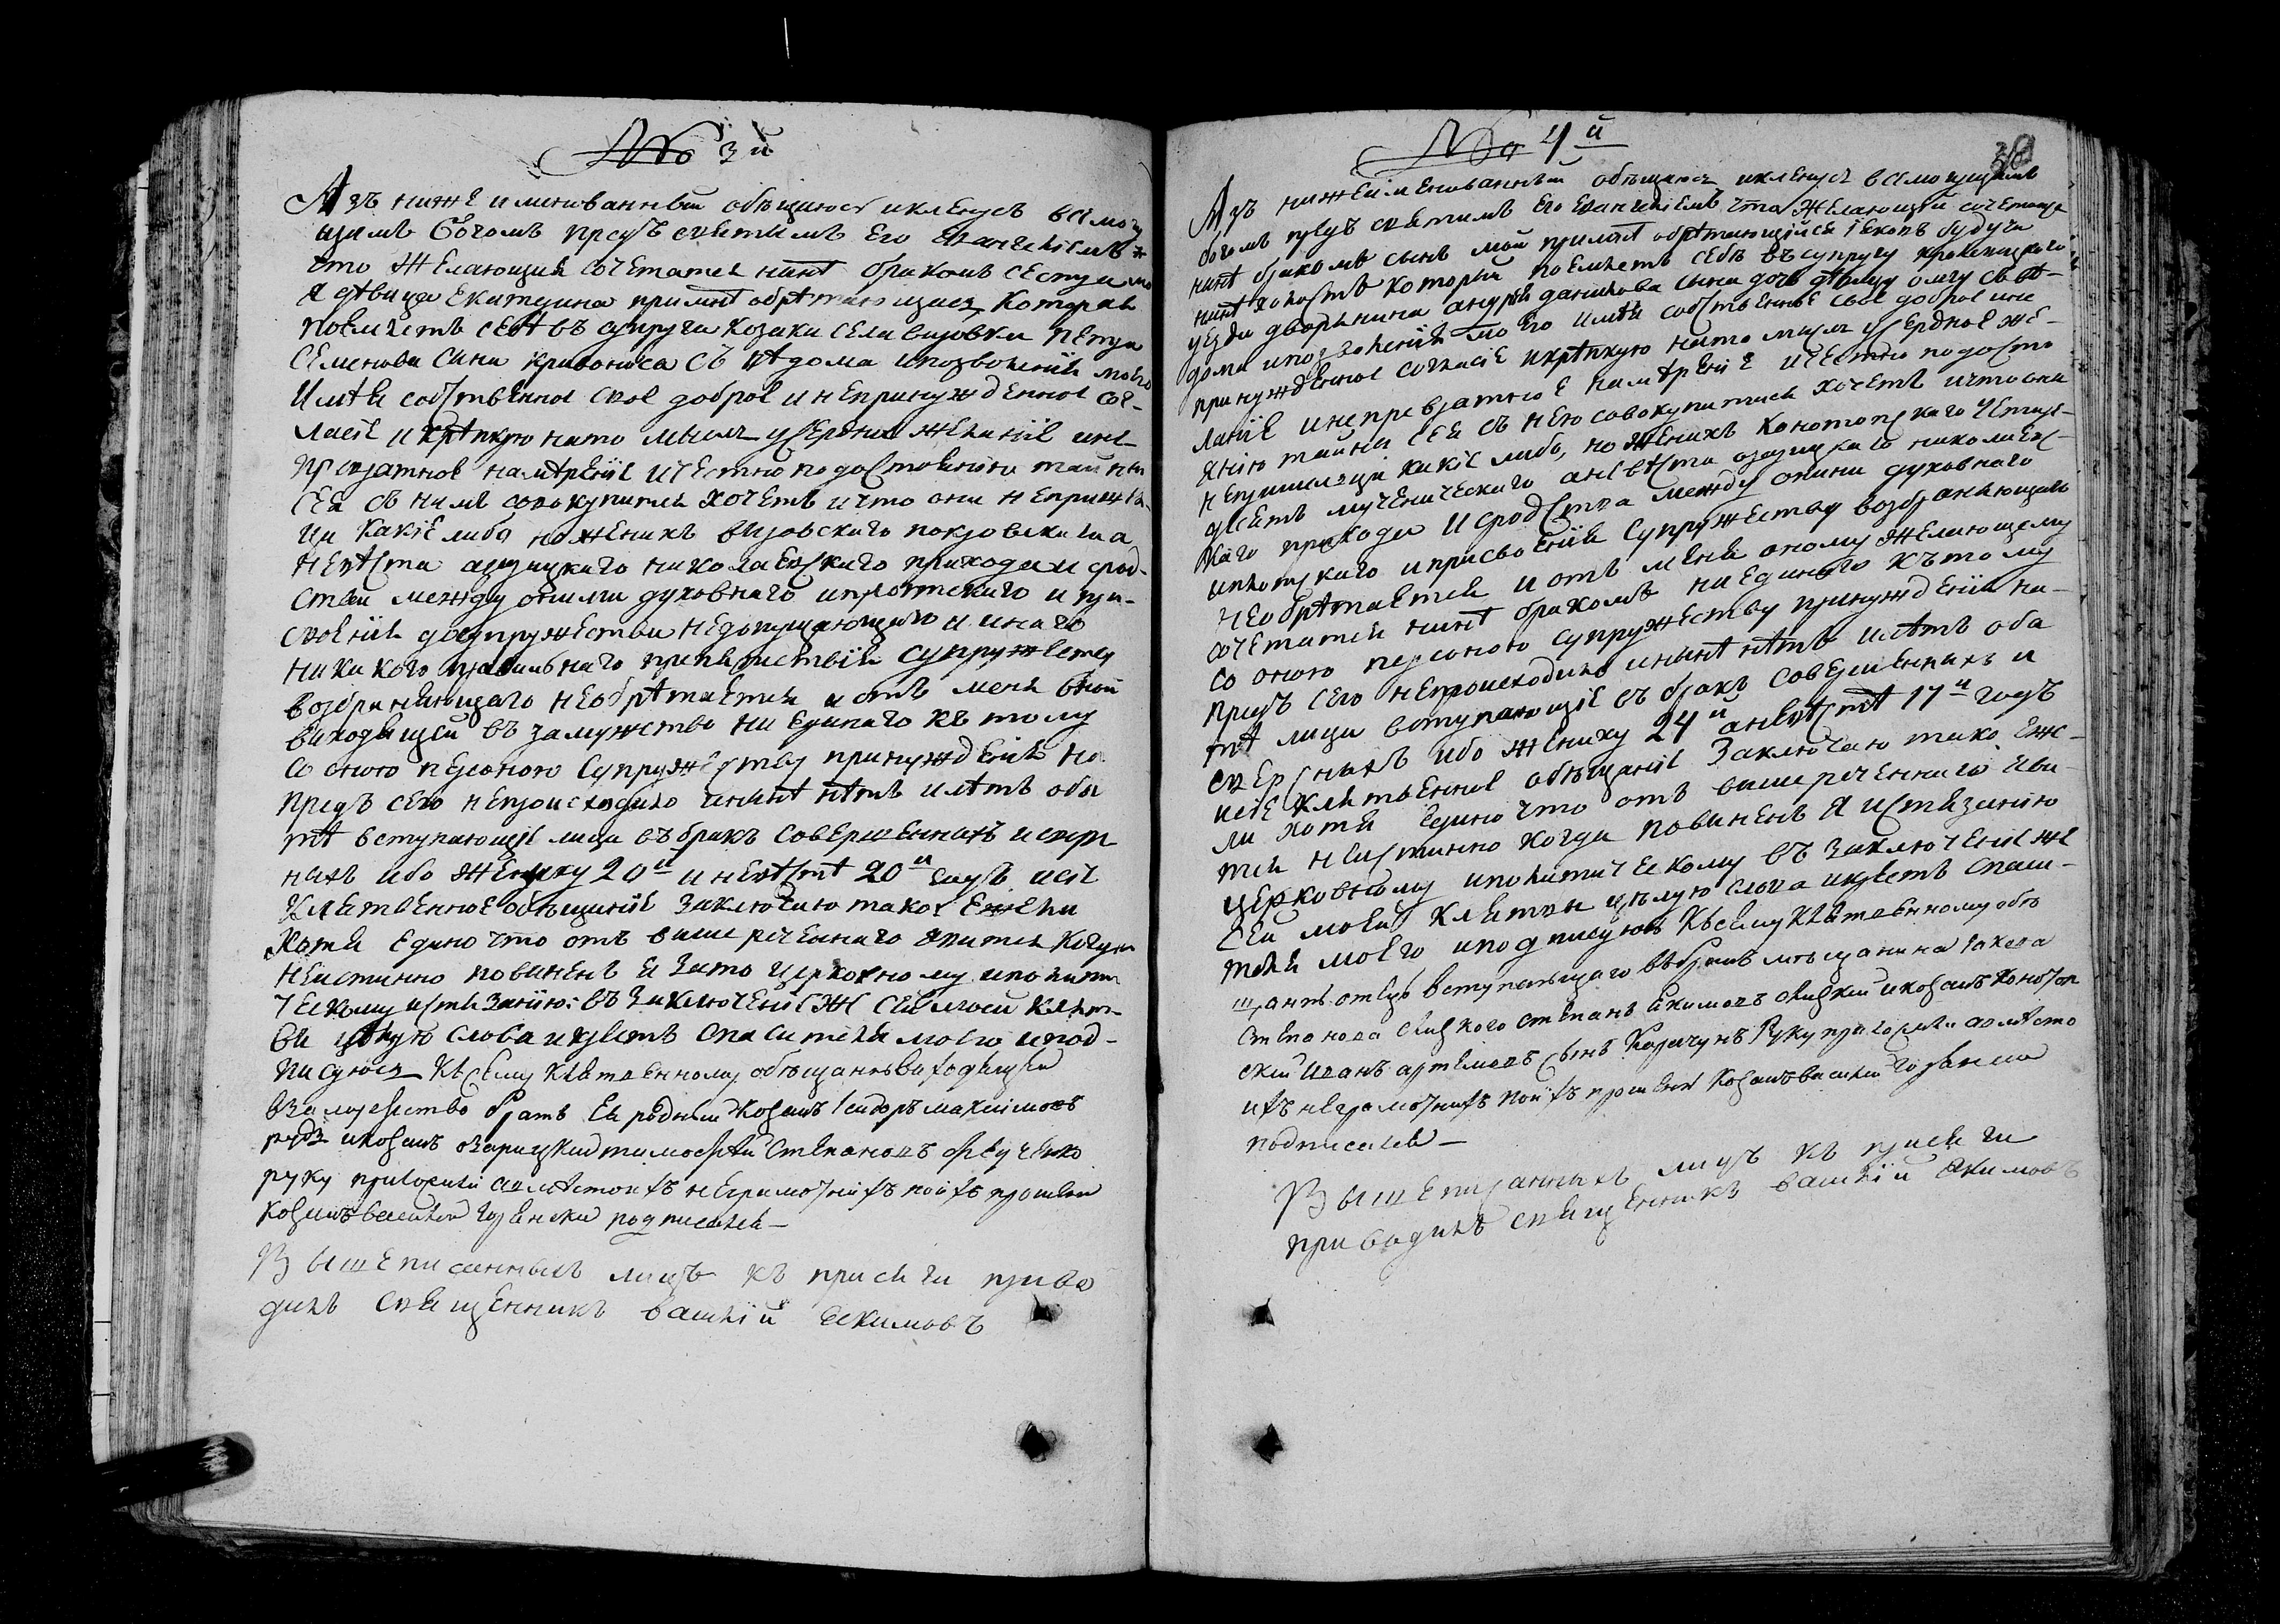 № 3й
Азъ нижеименованный обѣщаюсь и кленусь всемогу
щимъ Богомъ предъ святымъ Его Евангеліемъ
что желающая сочетатся нинѣ бракомъ сестра мо
я дѣвица Екатерина при мнѣ обрѣтающаяся, которая
поемлетъ себѣ въ супруга козака села визовки петра
Семенова сина кривоноса съ вѣдома и позволенія моего
Имѣя собственное свое доброе и непринужденное сог-
ласіе и крѣпкую на то мысль усердное желаніе и не
превратное намѣреніе и честно по достоянію тайны
сея съ нимъ совокупитися хочетъ и что они не пришел
ци какіе либо но женихъ визовского покровскаго а
невѣста озарицкаго николаевского прихода и срод-
ства между оними духовнаго и плотского и при-
своенія до супружества недопущающаго и инаго
никакого правильнаго препятствія супружеству
возбраняющаго необрѣтается и отъ меня оной
виходящей въ замужство ни единаго къ тому
со оною персоною супружеству принужденія на
предъ сего непроисходило и нинѣ нѣтъ и лѣтъ оба
тѣ вступающіе лица въ бракъ совершеннихъ и свер
нихъ ибо жениху 20й и невѣстѣ 20й годъ и сіе
клятвенное обѣщаніе заключаю тако: Ежели
хотя едино что отъ вишереченнаго явится когда
неистинно повиненъ я за то церковному и полити
ческому истязанію: въ заключеніе же сей моей клят-
ви цѣлую слова и крестъ спасителя моего и под-
писуюсь Къ сему клятвенному обѣщанію виходящей
в замужество братъ Ея родный козакъ Сидоръ максимовъ
и козакъ озарицкий тимофей Степановъ Шевченко
руку приложили а вмѣсто ихъ неграмотнихъ по ихъ прошенію
козакъ василей подписался
Вышеписанныхъ лицъ къ присяги приво
дилъ священникъ василій Якимовъ
№ 4й
Азъ нижеименованный обѣщаюсь и кленусь всемогущимъ
богомъ предъ святимъ Его Евангеліемъ что желающій сочетатся
нинѣ бракомъ сынъ мой при мнѣ обрѣтающійся Іековъ будучи
нинѣ холостъ который поемлетъ себѣ въ супругу кролевецкого
уезда дворянина андрея данилова сына дочь дѣвицу олгу съ вѣ-
дома и позволенія моего имѣя собственное свое доброе и не
принужденное согласіе и крѣпкую на то мысль усердное же-
ланіе и непревратное намѣреніе и честно по досто
янію тайны сея съ нею совокупитися хочетъ и что они
непришелци какіе либо, но женихъ Конотопского Четире-
десять мученического а невѣста озарицкаго николаев-
скаго прихода и сродства между оними духовнаго
и плотского и присвоенія супружеству возбраняющаго
необрѣтается и отъ меня оному желающему
сочетатся нинѣ бракомъ ни единаго къ тому
со оною персоною супружеству принужденія на-
предъ сего непроисходило и нинѣ нѣтъ и лѣтъ оба
тѣ лица вступающіе въ бракъ совершеннихъ и
сверснихъ ибо жениху 24й а невѣстѣ 17й годъ
и сіе клятвенное обѣщаніе Заключаю тако еже-
ли хотя едино что отъ вишереченнаго яви
тся неистинно когда повиненъ я истязанію
церковному и политическому въ заключеніе же
сей моей клятви цѣлую слова и крестъ спаси-
теля моего и подписуюсь Къ сему клятвенному обѣ
щанію отецъ вступающаго въ бракъ мѣщанина Іакова
Степанова Степанъ Якимовъ и козакъ конотоп
ский Иванъ артемовъ сынъ Карачунъ Руку приложили а вмѣсто
ихъ неграмотнихъ по ихъ прошенію козакъ василий
подписался
Вышеписанныхъ лицъ къ присяги
приводилъ священникъ василій Якимовъ